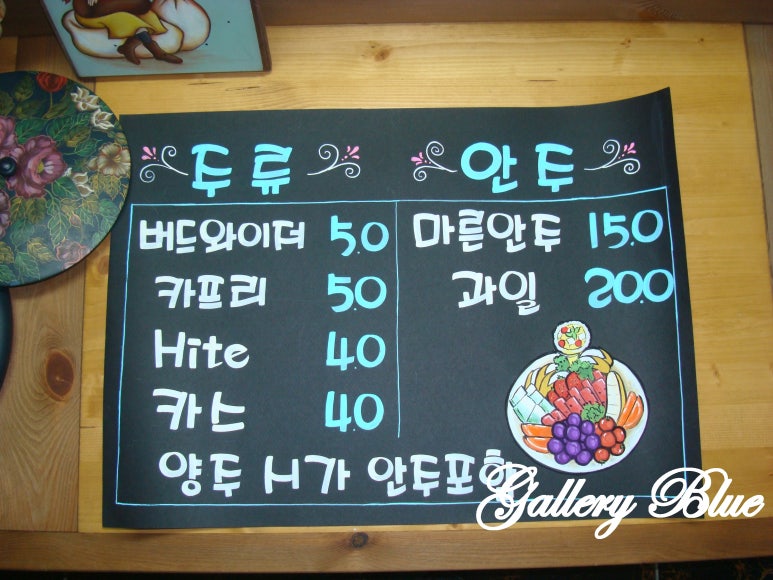 주류
버드와이저 5.0
카프리 5.0
Hite 4.0
카스 4.0
안주
마른안주 15.0
과일 20.0
양주 시가 안주포함
Gallery Blue